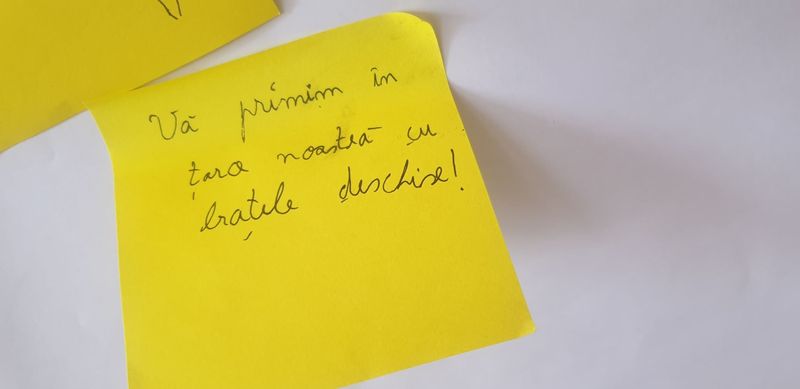 Vă primim în
țara noastră cu
brațele deschise!